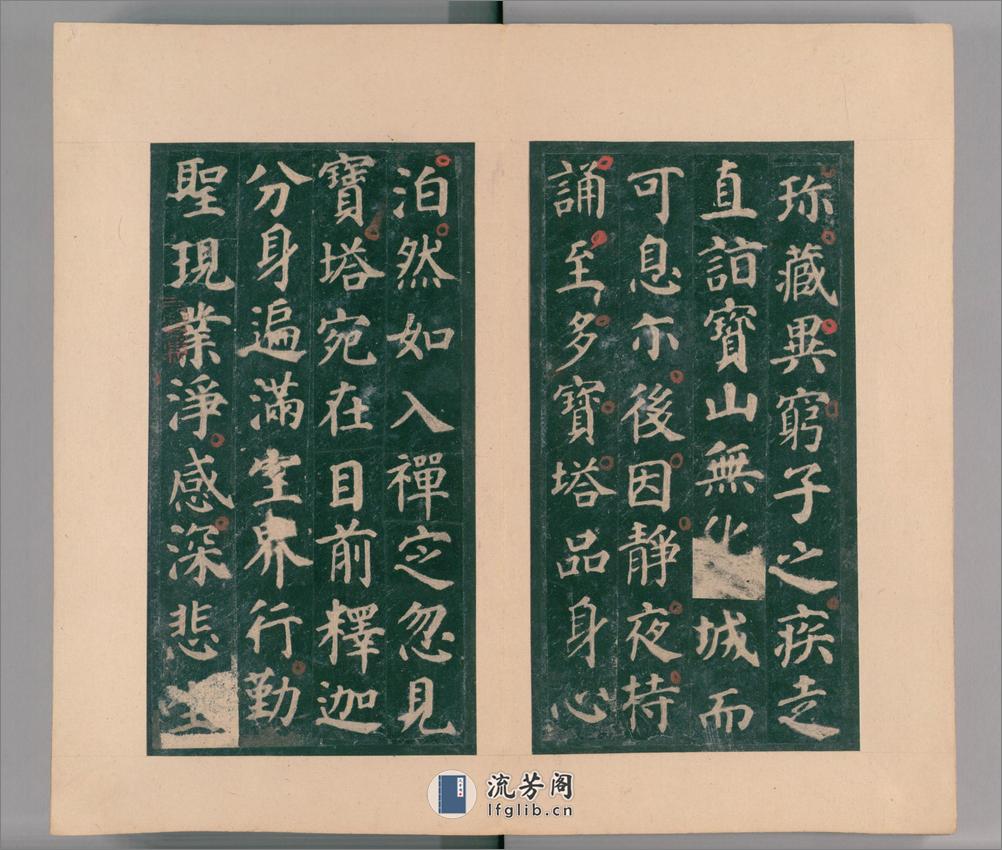 珎藏異窮子之疾走
直詣寶山無化城而
可息尒後因静夜持
誦至多寶塔品身心
泊然如入禪定忽見
寶塔宛在目前釋迦
分身遍滿空界行勤
聖現業淨感深悲生
流芳阁
lfglib.cn